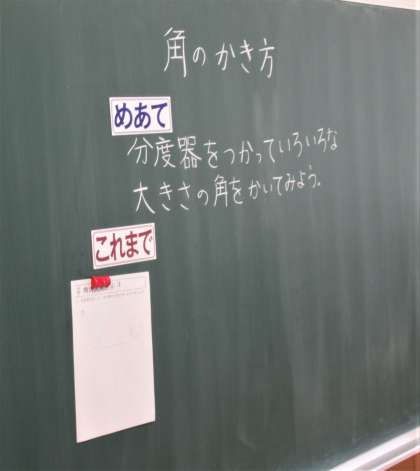 角のかき方
めあて
分度器をつかっていろいろな
大きさの角をかいてみよう。
これまで